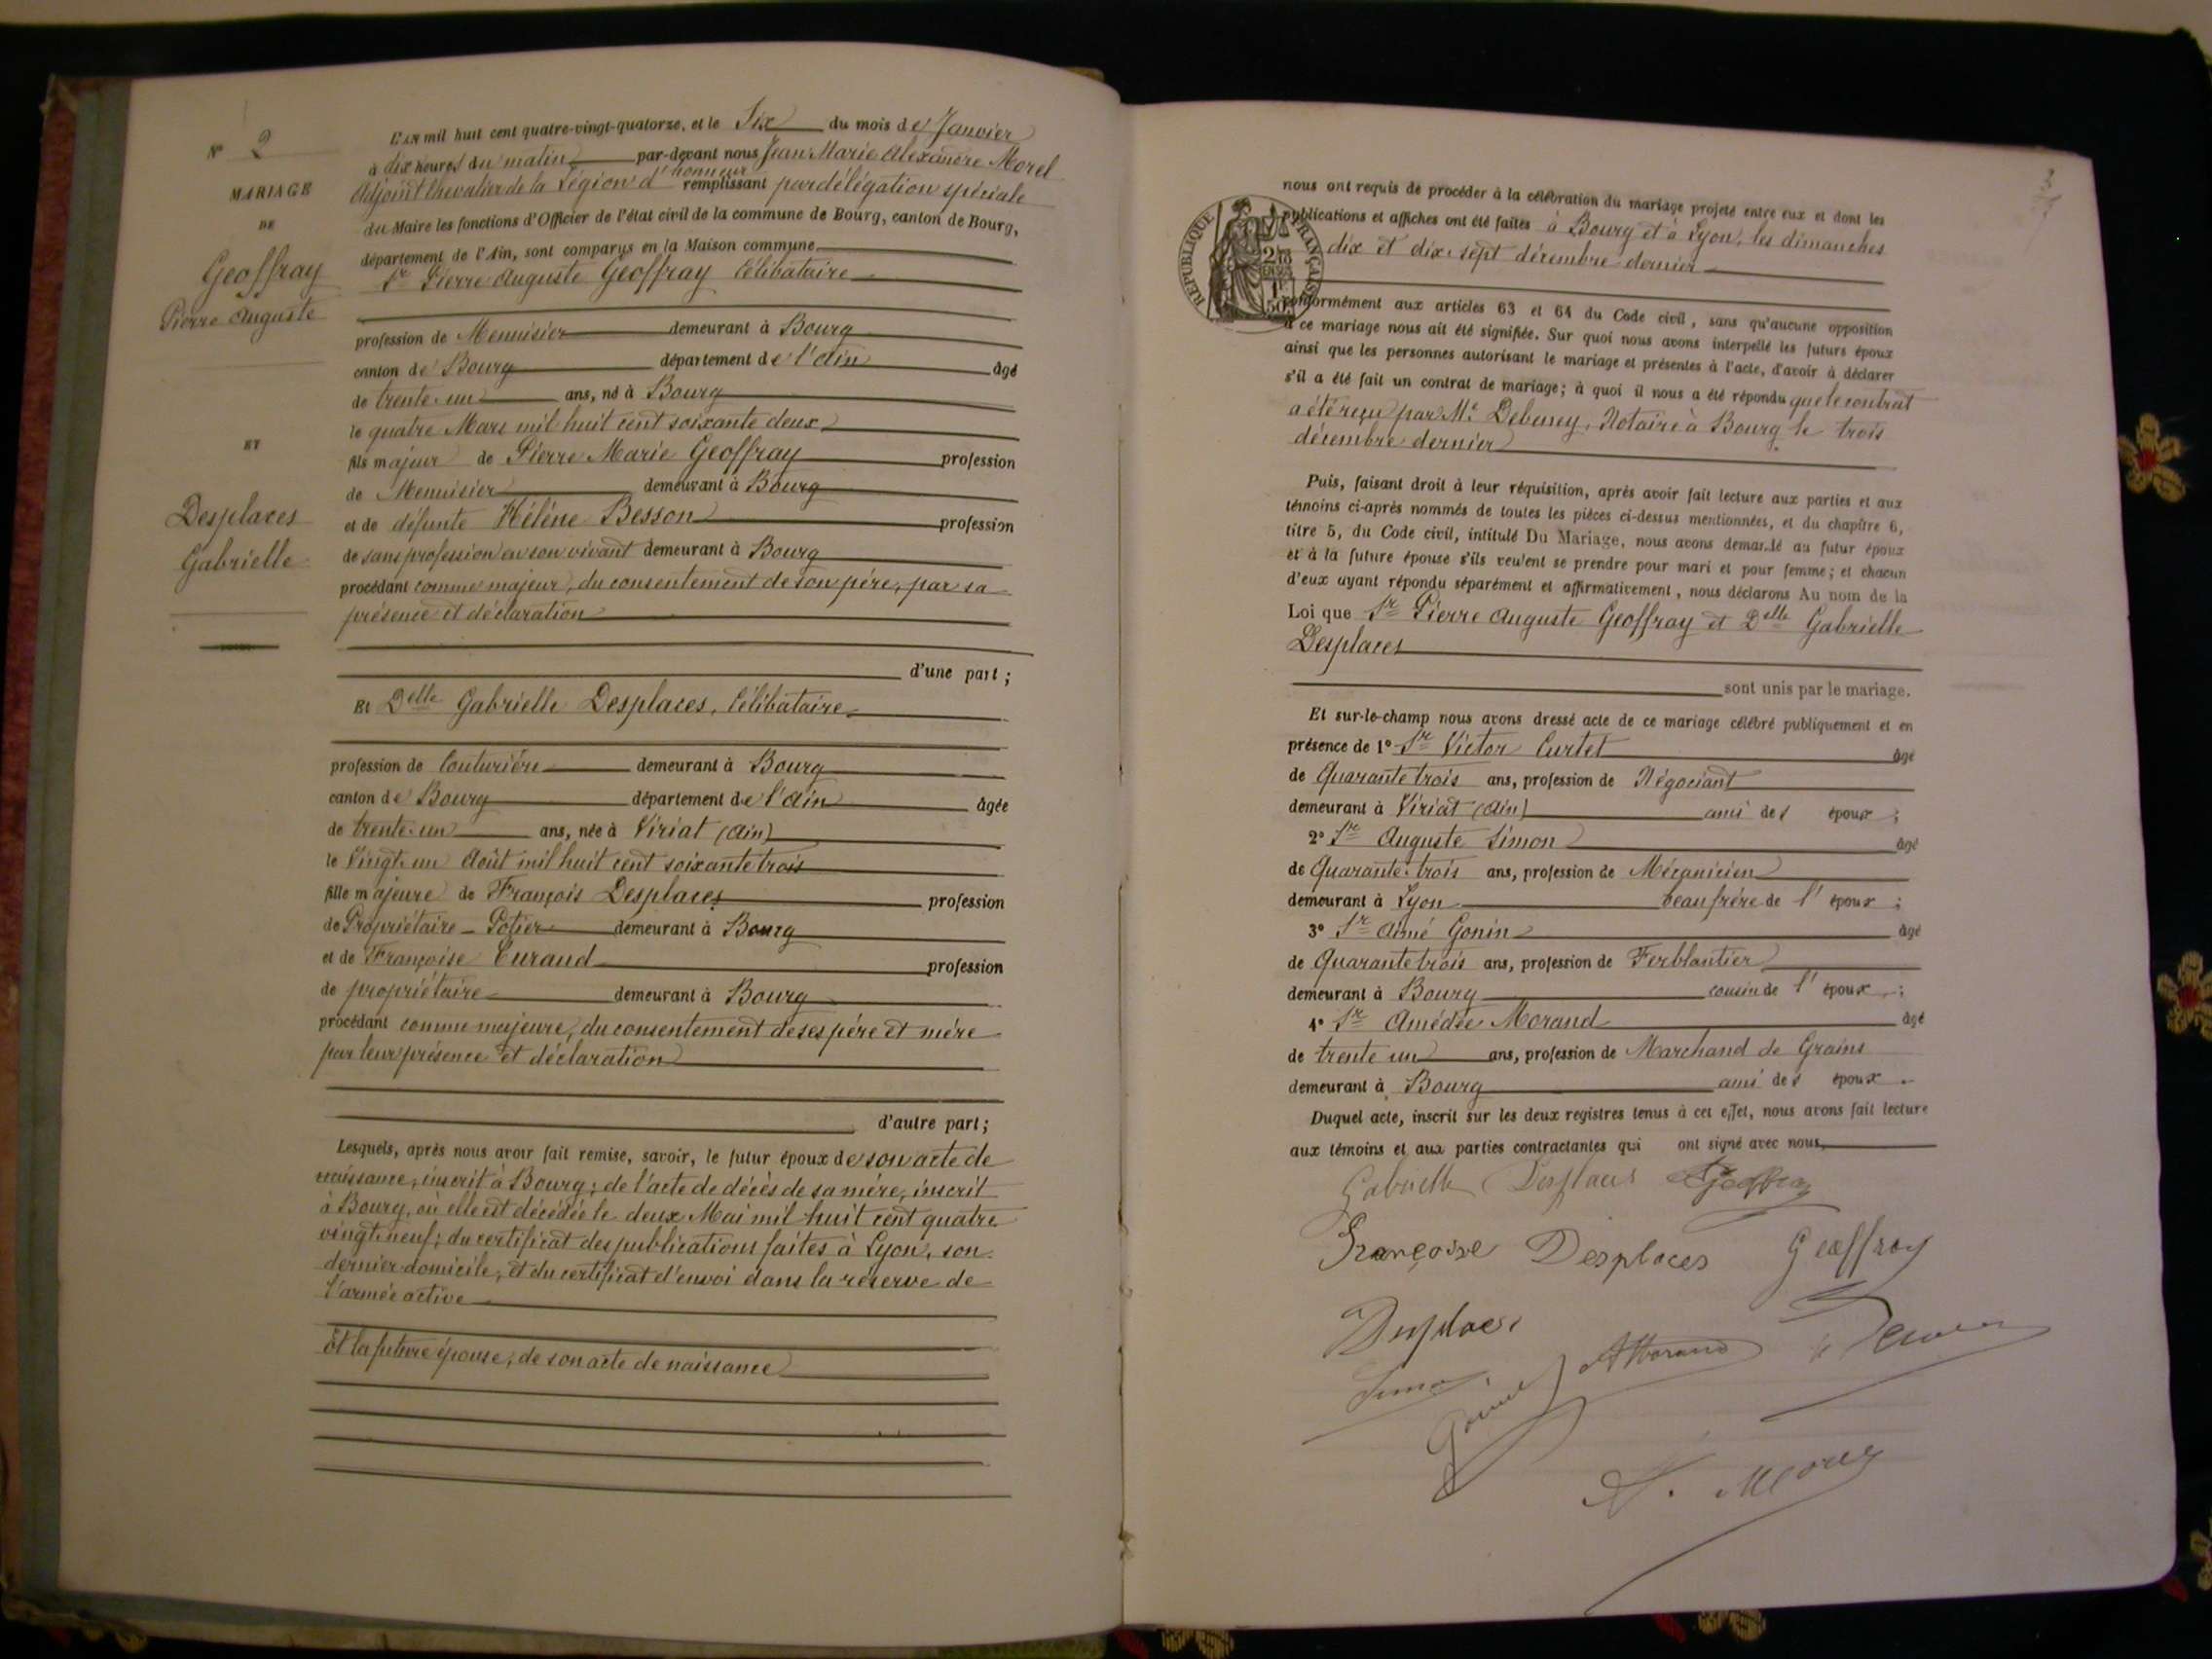 N° 2
MARIAGE
DE
Geoffray
Pierre Auguste
ET
Desplaces
Gabrielle
L'AN mil huit cent quatre-vingt-quatorze, et le Six du mois de Janvier
à dix heures du matin par-devant nous Jean Marie Alexandre Morel
Adjoint Chevalier de la Légion d'honneur remplissant par délégation spéciale
du Maire les fonctions d'Officier de l'état civil de la commune de Bourg, canton de Bourg,
département de l'Ain, sont comparus en la Maison commune
Sr Pierre Auguste Geoffray Célibataire
profession de Menuisier demeurant à Bourg
canton de Bourg département de l'Ain âgé
de trente-un ans, né à Bourg
le quatre Mars mil huit cent soixante deux
fils majeur de Pierre Marie Geoffray profession
de Menuisier demeurant à Bourg
et de défunte Hélène Besson profession
de sans profession en son vivant demeurant à Bourg
procédant comme majeur, du consentement de son père, par sa
présence et déclaration
d'une part ;
Et Delle Gabrielle Desplaces, Célibataire
profession de Couturière demeurant à Bourg
canton de Bourg département de l'Ain âgée
de trente-un ans, née à Viriat (Ain)
le Vingt-un Août mil huit cent soixante trois
fille majeure de François Desplaces profession
de Propriétaire - Potier demeurant à Bourg
et de Françoise Curaud profession
de propriétaire demeurant à Bourg
procédant comme majeure, du consentement de ses père et mère
par leur présence et déclaration
d'autre part ;
Lesquels, après nous avoir fait remise, savoir, le futur époux de son acte de
naissance, inscrit à Bourg ; de l'acte de décès de sa mère, inscrit
à Bourg, où elle est décédée le deux Mai mil huit cent quatre
vingt-neuf ; du certificat des publications faites à Lyon, son
dernier domicile, et du certificat d'envoi dans la réserve de
l'armée active
Et la future épouse, de son acte de naissance
RÉPUBLIQUE FRANÇAISE
nous ont requis de procéder à la célébration du mariage projeté entre eux et dont les
publications et affiches ont été faites à Bourg et à Lyon, les dimanches
dix et dix-sept décembre dernier
conformément aux articles 63 et 64 du Code civil, sans qu'aucune opposition
à ce mariage nous ait été signifiée. Sur quoi nous avons interpellé les futurs époux
ainsi que les personnes autorisant le mariage et présentes à l'acte, d'avoir à déclarer
s'il a été fait un contrat de mariage ; à quoi il nous a été répondu que le contrat
a été reçu par Me Debeney, Notaire à Bourg le trois
décembre dernier
Puis, faisant droit à leur réquisition, après avoir fait lecture aux parties et aux
témoins ci-après nommés de toutes les pièces ci-dessus mentionnées, et du chapitre 6,
titre 5, du Code civil, intitulé Du Mariage, nous avons demandé au futur époux
et à la future épouse s'ils veulent se prendre pour mari et pour femme ; et chacun
d'eux ayant répondu séparément et affirmativement, nous déclarons Au nom de la
Loi que Sr Pierre Auguste Geoffray et Delle Gabrielle
Desplaces
sont unis par le mariage.
Et sur-le-champ nous avons dressé acte de ce mariage célébré publiquement et en
présence de 1° Sr Victor Curtet âgé
de Quarante trois ans, profession de Négociant
demeurant à Viriat (Ain) ami des époux ;
2° Sr Auguste Simon âgé
de Quarante-trois ans, profession de Mécanicien
demeurant à Lyon beau frère de l' époux ;
3° Sr Aimé Gonin âgé
de Quarante trois ans, profession de Ferblantier
demeurant à Bourg cousin de l' époux ;
4° Sr Amédée Morand âgé
de trente un ans, profession de Marchand de Grains
demeurant à Bourg ami des époux .
Duquel acte, inscrit sur les deux registres tenus à cet effet, nous avons fait lecture
aux témoins et aux parties contractantes qui ont signé avec nous,
Gabrielle Desplaces Geoffray
Françoise Desplaces Geoffray
Desplaces
Simon Gonin AMorand
A. Morel